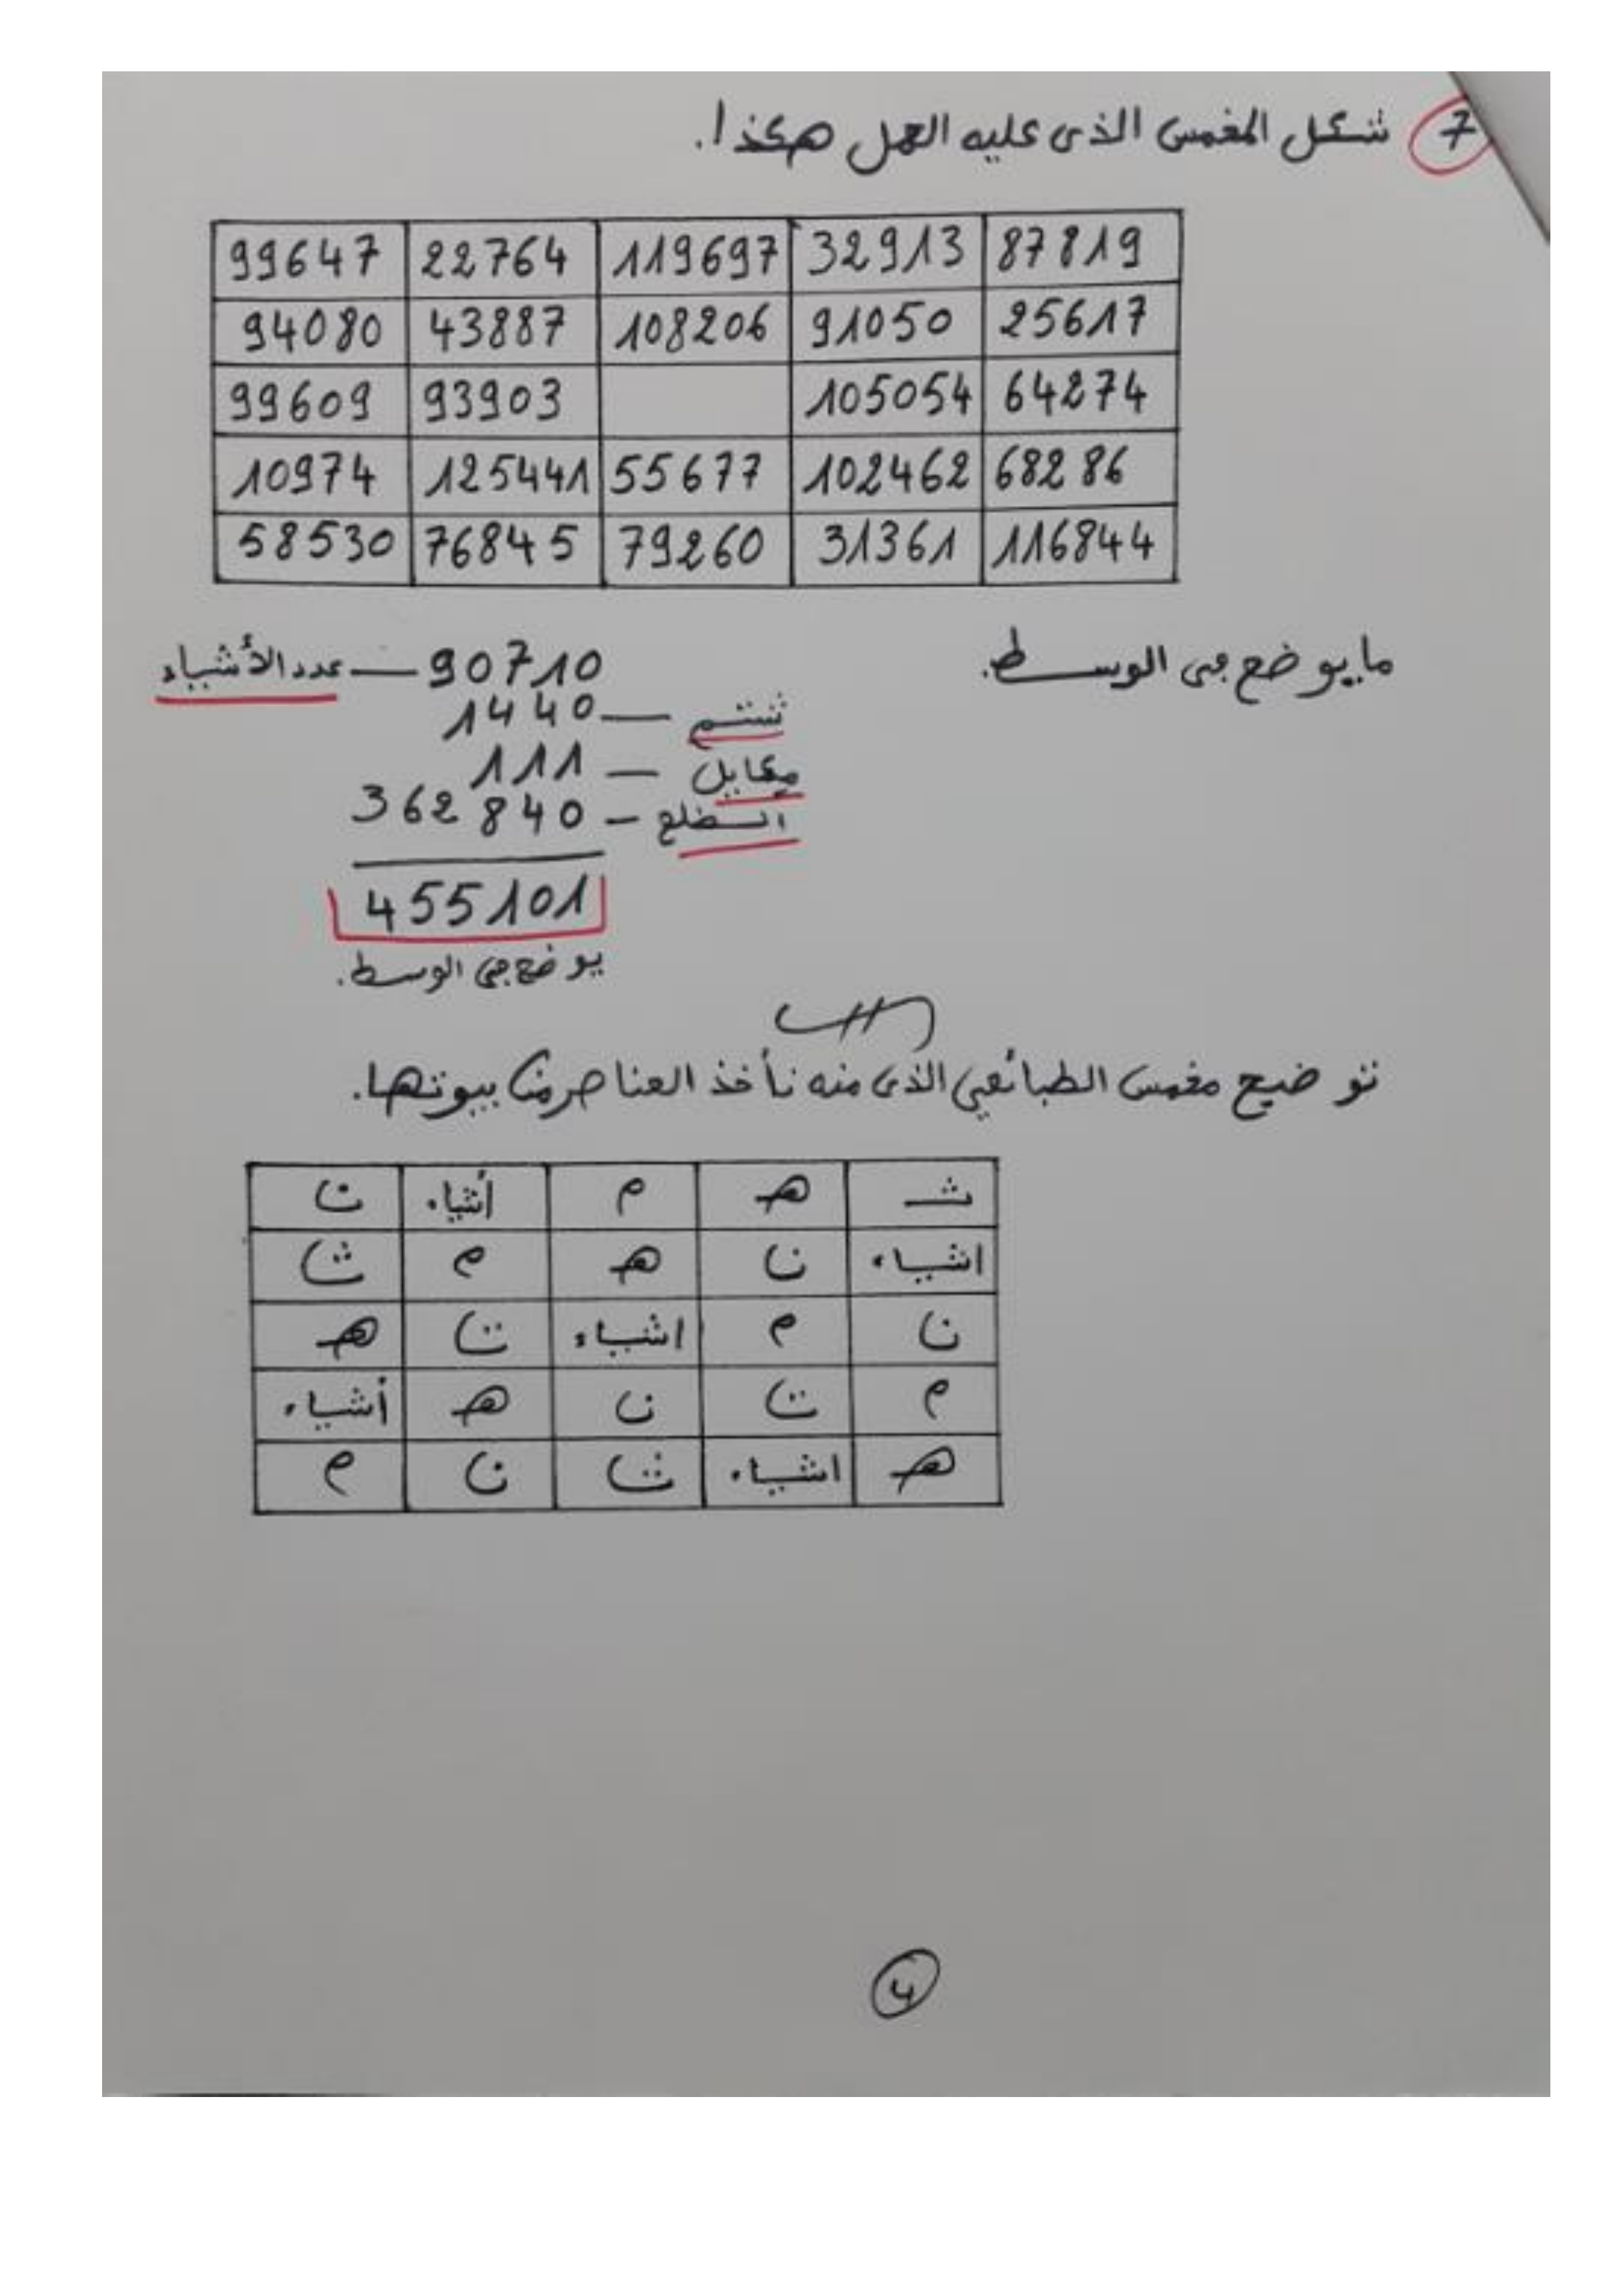 7 شكل المخمس الذى عليه العمل هكذا.
99647 22764 119697 32913 87819
94080 43887 108206 91050 25617
99609 93903 105054 64274
10974 125441 55677 102462 68286
58530 76845 79260 31361 116844
ما يوضع فى الوسط.
90710 — عدد الأشياء
1440 —
111 —
362840 — الضلع
455101
يوضع فى الوسط.
توضيح مخمس الطبائعي الذى منه نأخذ العناصر من بيوتها.
ث هـ م أشياء ن
اشياء ن هـ م ث
ن م اشياء ث هـ
م ث ن هـ أشياء
هـ اشياء ث ن م
4